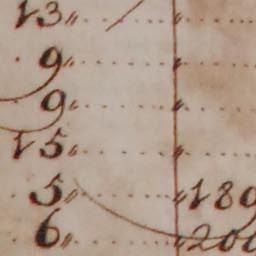 13〃 〃
9〃 〃
9〃 〃
15〃 〃
5〃 〃189
6〃 〃200